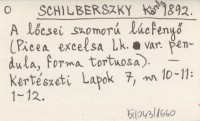 O SCHILBERSZKY K. 1892.
A lőcsei szomorú lúcfenyő
(Picea excelsa Lk. var. pen-
dula, forma tortuosa). —
Kertészeti Lapok 7, nr 10-11:
1-12.